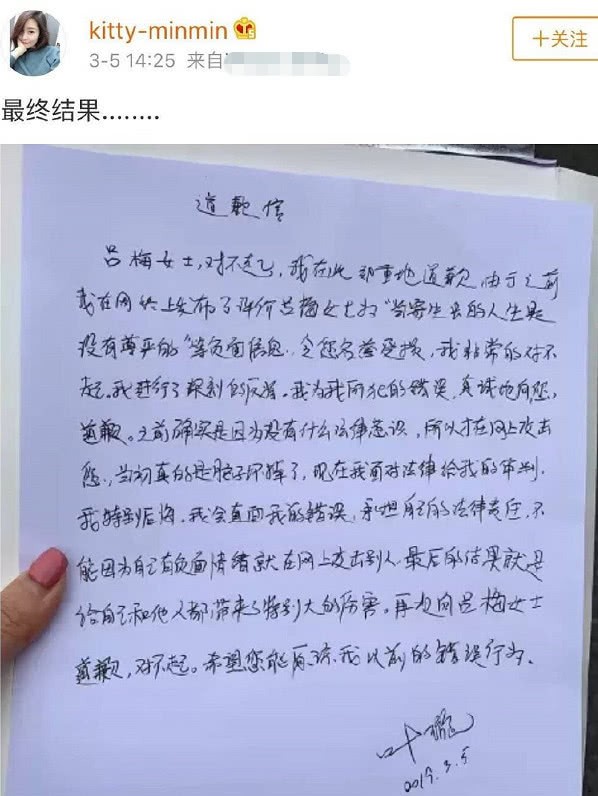 kitty-minmin
3-5 14:25 来自
十关注
最终结果........
道歉信
吕梅女士,对不起,我在此郑重地道歉 由于之前
我在网络上发布了评价吕梅女士为“当寄生虫的人生是
没有尊严的”等负面信息,令您名誉受损,我非常的对不
起。我进行了深刻的反省。我为我所犯的错误,真诚地向您,
道歉。之前确实是因为没有什么法律意识,所以才在网上攻击
您,当初真的是脑子坏掉了,现在我面对法律给我的审判,
我特别后悔。我会直面我的错误,承担自己的法律责任,不
能因为自己有负面情绪就在网上攻击别人.最后的结果就是
给自己和他人都带来了特别大的伤害。再次向吕梅女士
道歉,对不起。希望您能原谅我以前的错误行为.
叶璇
2019.3.5